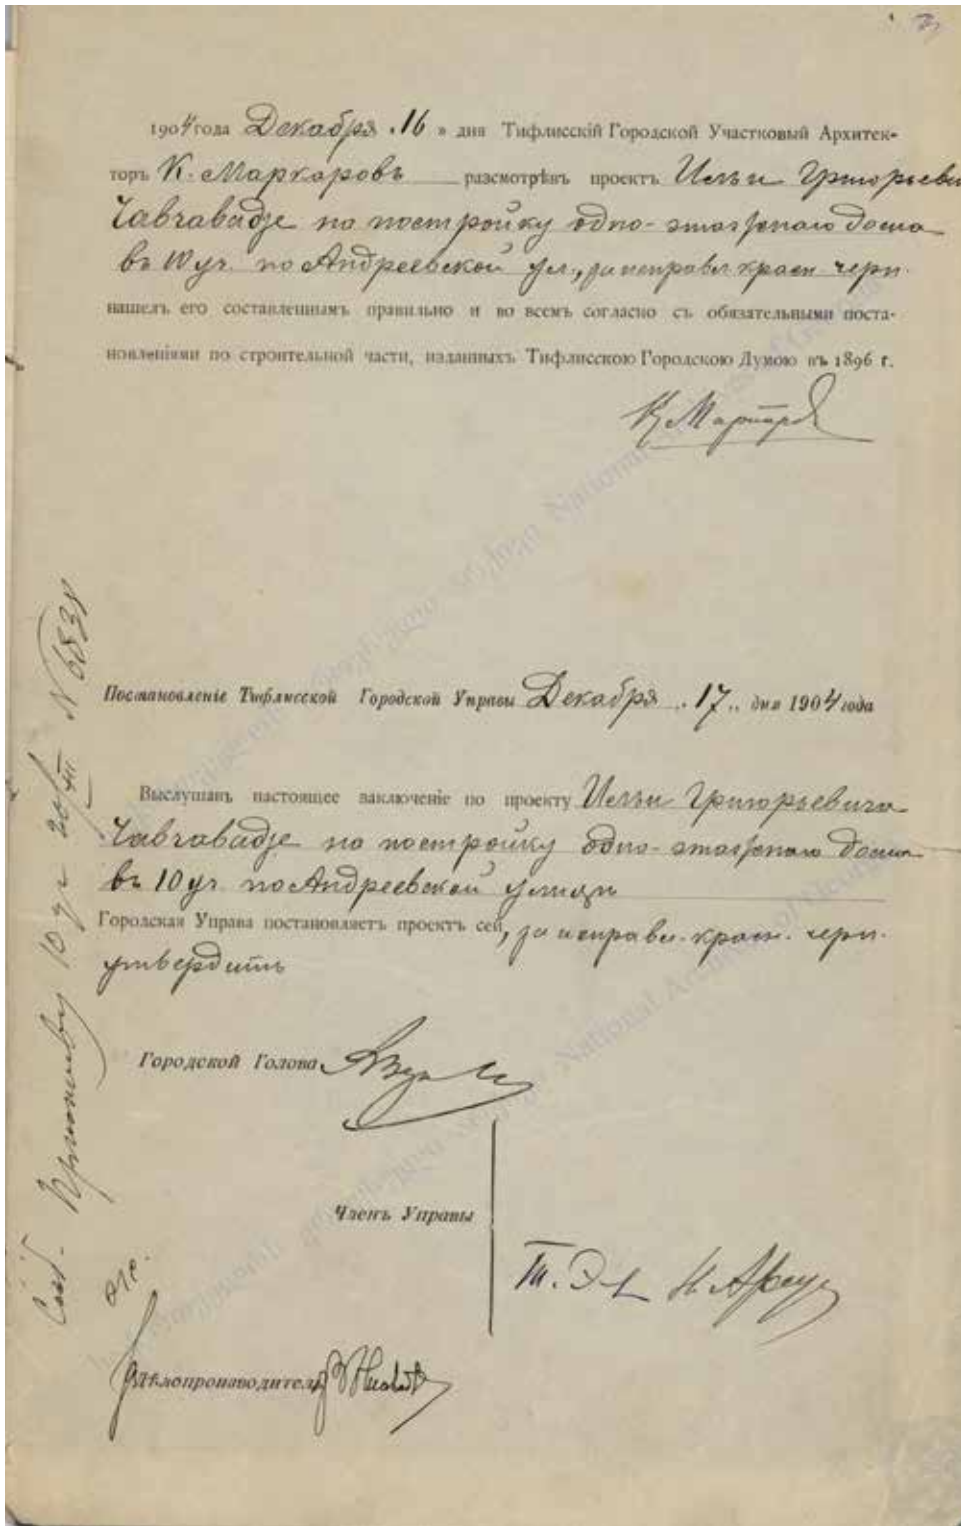 1904 года Декабря „16 » дня Тифлисскій Городской Участковый Архитек-
торъ К. Маркаровъ разсмотрѣвъ проектъ Ильи Григорьеви
Чавчавадзе на постройку одно-этажнаго дома
въ 10 уч. по Андреевской ул., за исправл. красн. черн.
нашелъ его составленнымъ правильно и во всемъ согласно съ обязательными поста-
новленіями по строительной части, изданныхъ Тифлисскою Городскою Думою въ 1896 г.
Постановленіе Тифлисской Городской Управы Декабря „17„ дня 1904 года
Выслушавъ настоящее заключеніе по проекту Ильи Григорьевича
Чавчавадзе на постройку одно-этажнаго дома
въ 10 уч. по Андреевской улицѣ
Городская Управа постановляетъ проектъ сей, за исправл. красн. черн.
утвердить
Городской Голова
Членъ Управы
Дѣлопроизводитель
10 уч 20/XII N 6838